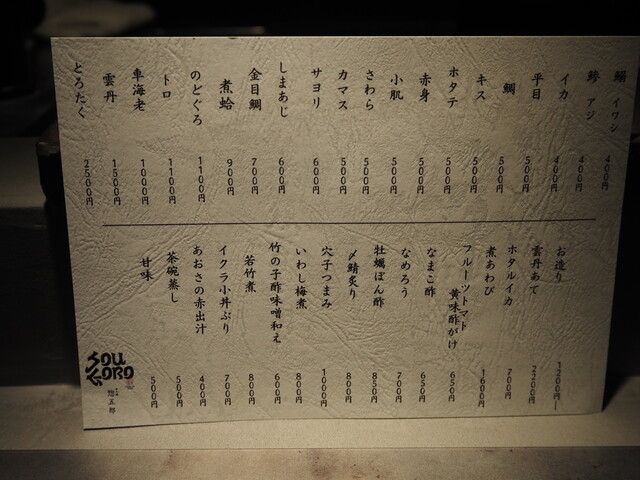 鰯 イワシ 400円
鯵 アジ 400円
イカ 400円
平目 500円
鯛 500円
キス 500円
ホタテ 500円
赤身 500円
小肌 500円
さわら 500円
カマス 500円
サヨリ 600円
しまあじ 600円
金目鯛 700円
煮蛤 900円
のどぐろ 1100円
トロ 1100円
車海老 1000円
雲丹 1500円
とろたく 2500円
お造り 1200円
雲丹あて 2200円
ホタルイカ 700円
煮あわび 1600円
フルーツトマト
黄味酢がけ 650円
なまこ酢 650円
なめろう 700円
牡蠣ぽん酢 850円
〆鯖炙り 800円
穴子つまみ 1000円
いわし梅煮 800円
竹の子酢味噌和え 600円
若竹煮 800円
イクラ小丼ぶり 700円
あおさの赤出汁 400円
茶碗蒸し 500円
甘味 500円
SOU
GORO
惣五郎